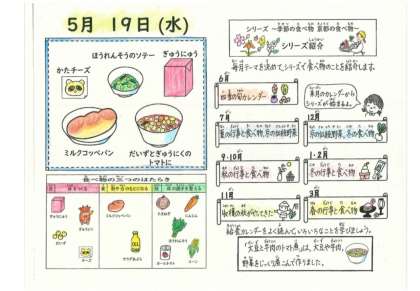 5月 19日(水)
ほうれんそうのソテー
ぎゅうにゅう
かたチーズ
ミルクコッペパン
だいずとぎゅうにくの
トマトに
食べ物の三つのはたらき
シリーズ ～季節の食べ物 京都の食べ物～
シリーズ紹介
毎月テーマを決めてシリーズで食べ物のことを紹介します。
6月
給食の旬カレンダー
来月のカレンダーから
シリーズが始まるよ。
7月
夏の行事と食べ物,京の伝統野菜
12月
京の伝統野菜,冬の食べ物
9・10月
秋の行事と食べ物
1・2月
冬の行事と食べ物
11月
収穫の秋がやってきた
3月
春の行事と食べ物
給食カレンダーをよく読んで,いろいろなことを学びましょう。
「大豆と牛肉のトマト煮」は,大豆や牛肉,
野菜をじっくり煮こんで作りました。